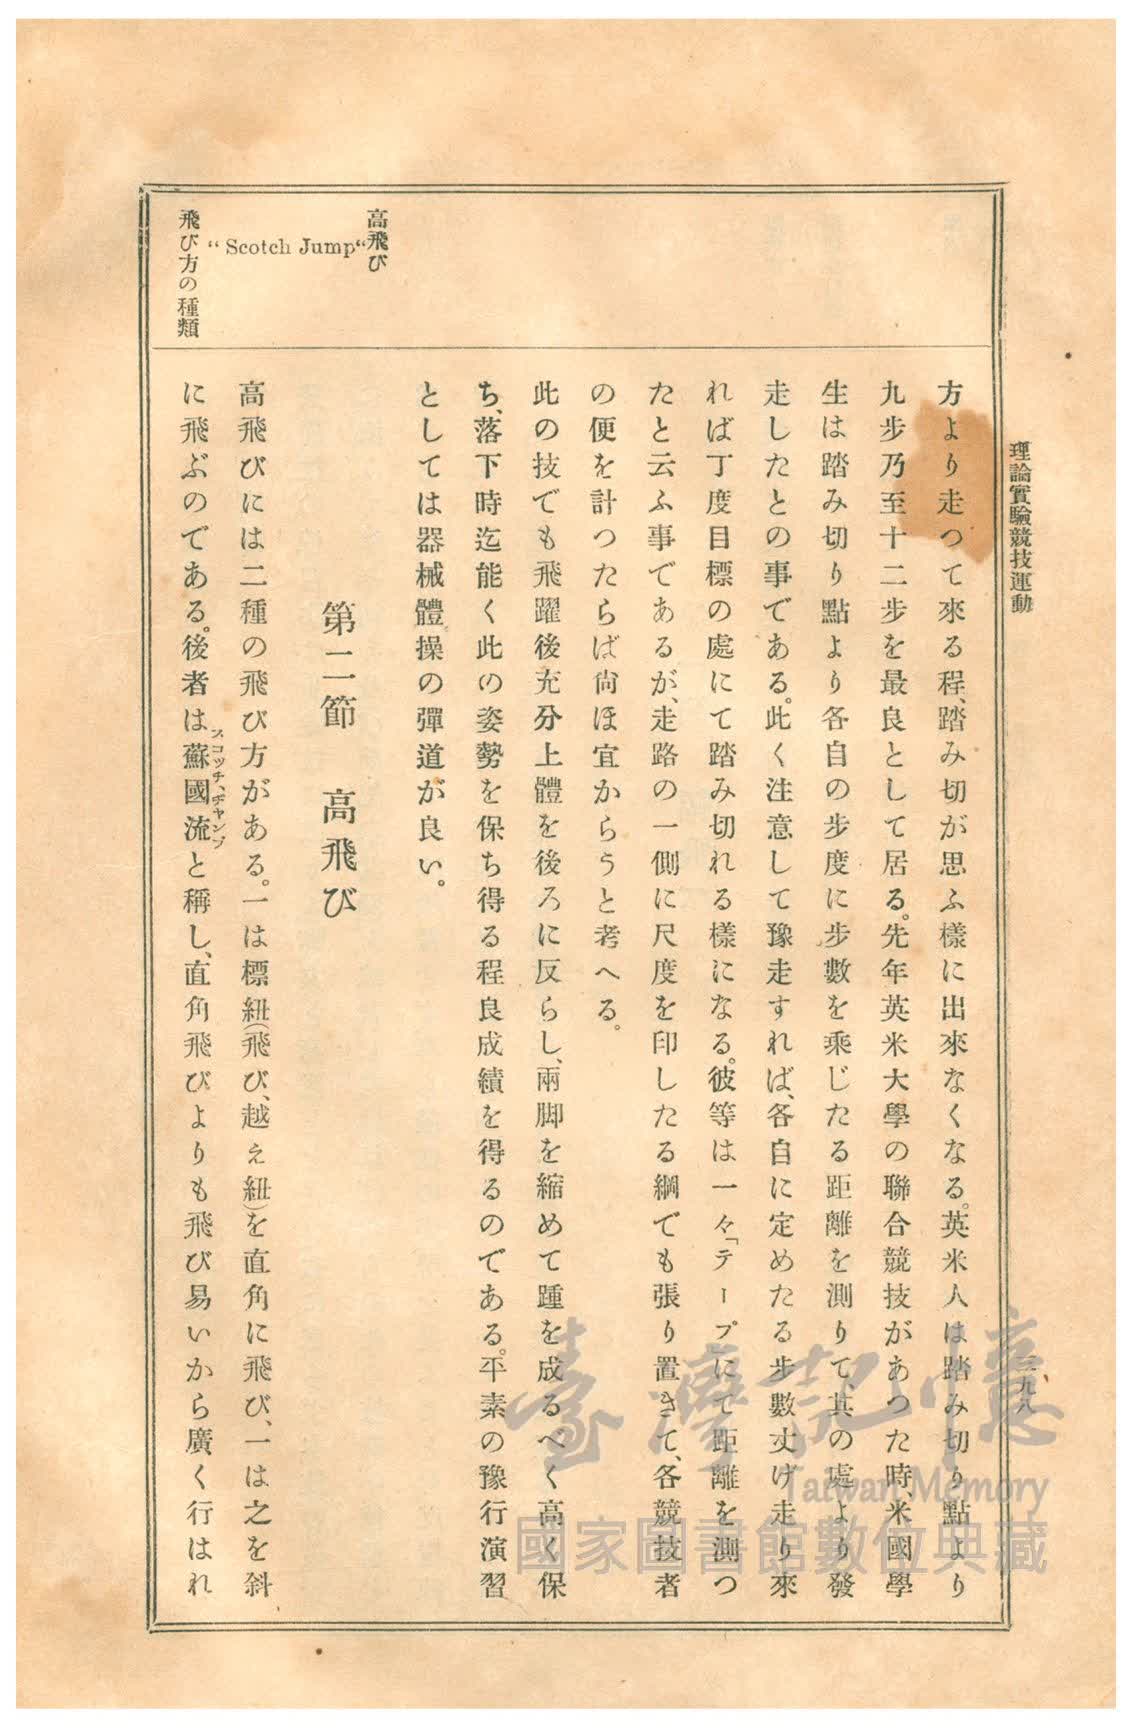 理論實驗競技運動
二九八
方より走つて來る程、踏み切が思ふ樣に出來なくなる。英米人は踏み切り點より
九步乃至十二步を最良として居る。先年英米大學の聯合競技があつた時、米國學
生は踏み切り點より各自の步度に步數を乘じたる距離を測りて、其の處より發
走したとの事である。此く注意して豫走すれば、各自に定めたる步數丈け走り來
れば丁度目標の處にて踏み切れる樣になる。彼等は一々「テープにて距離を測つ
たと云ふ事であるが、走路の一側に尺度を印したる綱でも張り置きて、各競技者
の便を計つたらば尙ほ宜からうと考へる。
此の技でも飛躍後充分上體を後ろに反らし、兩脚を縮めて踵を成るべく高く保
ち、落下時迄能く此の姿勢を保ち得る程良成績を得るのである。平素の豫行演習
としては器械體操の彈道が良い。
高飛び
第二節　高飛び
“Scotch Jump“
飛び方の種類
高飛びには二種の飛び方がある。一は標紐(飛び、越え紐)を直角に飛び、一は之を斜
に飛ぶのである。後者は蘇國流と稱し、直角飛びよりも飛び易いから廣く行はれ
スコッチ、ヂャンプ
臺灣記憶
Taiwan Memory
國家圖書館數位典藏